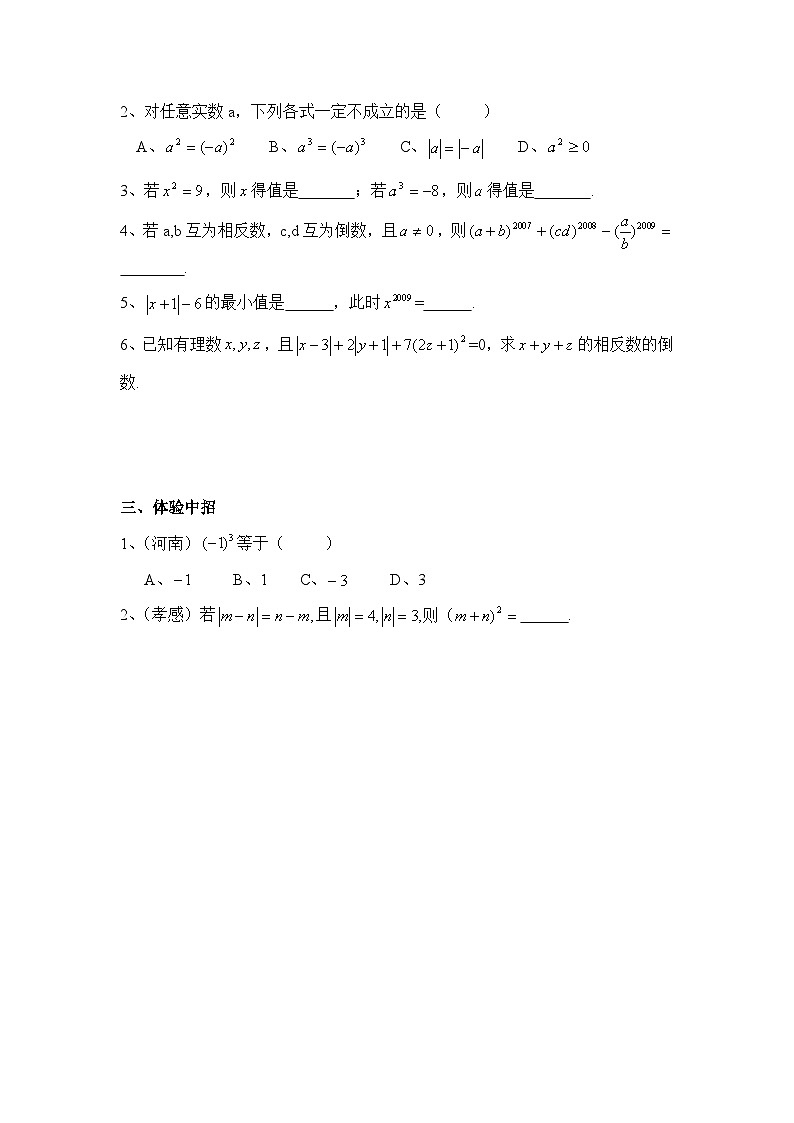 2、对任意实数 a，下列各式一定不成立的是（ ）
A、a² = (−a)² B、a³ = (−a)³ C、|a| = |−a| D、a² ≥ 0
3、若 x² = 9，则 x 得值是______；若 a³ = −8，则 a 得值是______.
4、若 a,b 互为相反数，c,d 互为倒数，且 a ≠ 0，则 (a + b)²⁰⁰⁷ + (cd)²⁰⁰⁸ − (a/b)²⁰⁰⁹ =
________.
5、|x + 1| − 6 的最小值是______，此时 x²⁰⁰⁹ =______.
6、已知有理数 x, y, z，且 |x − 3| + 2|y + 1| + 7(2z + 1)² =0，求 x + y + z 的相反数的倒
数.
三、体验中招
1、（河南）(−1)³ 等于（ ）
A、−1 B、1 C、−3 D、3
2、（孝感）若 |m − n| = n − m, 且 |m| = 4, |n| = 3,则（m + n)² = ______.